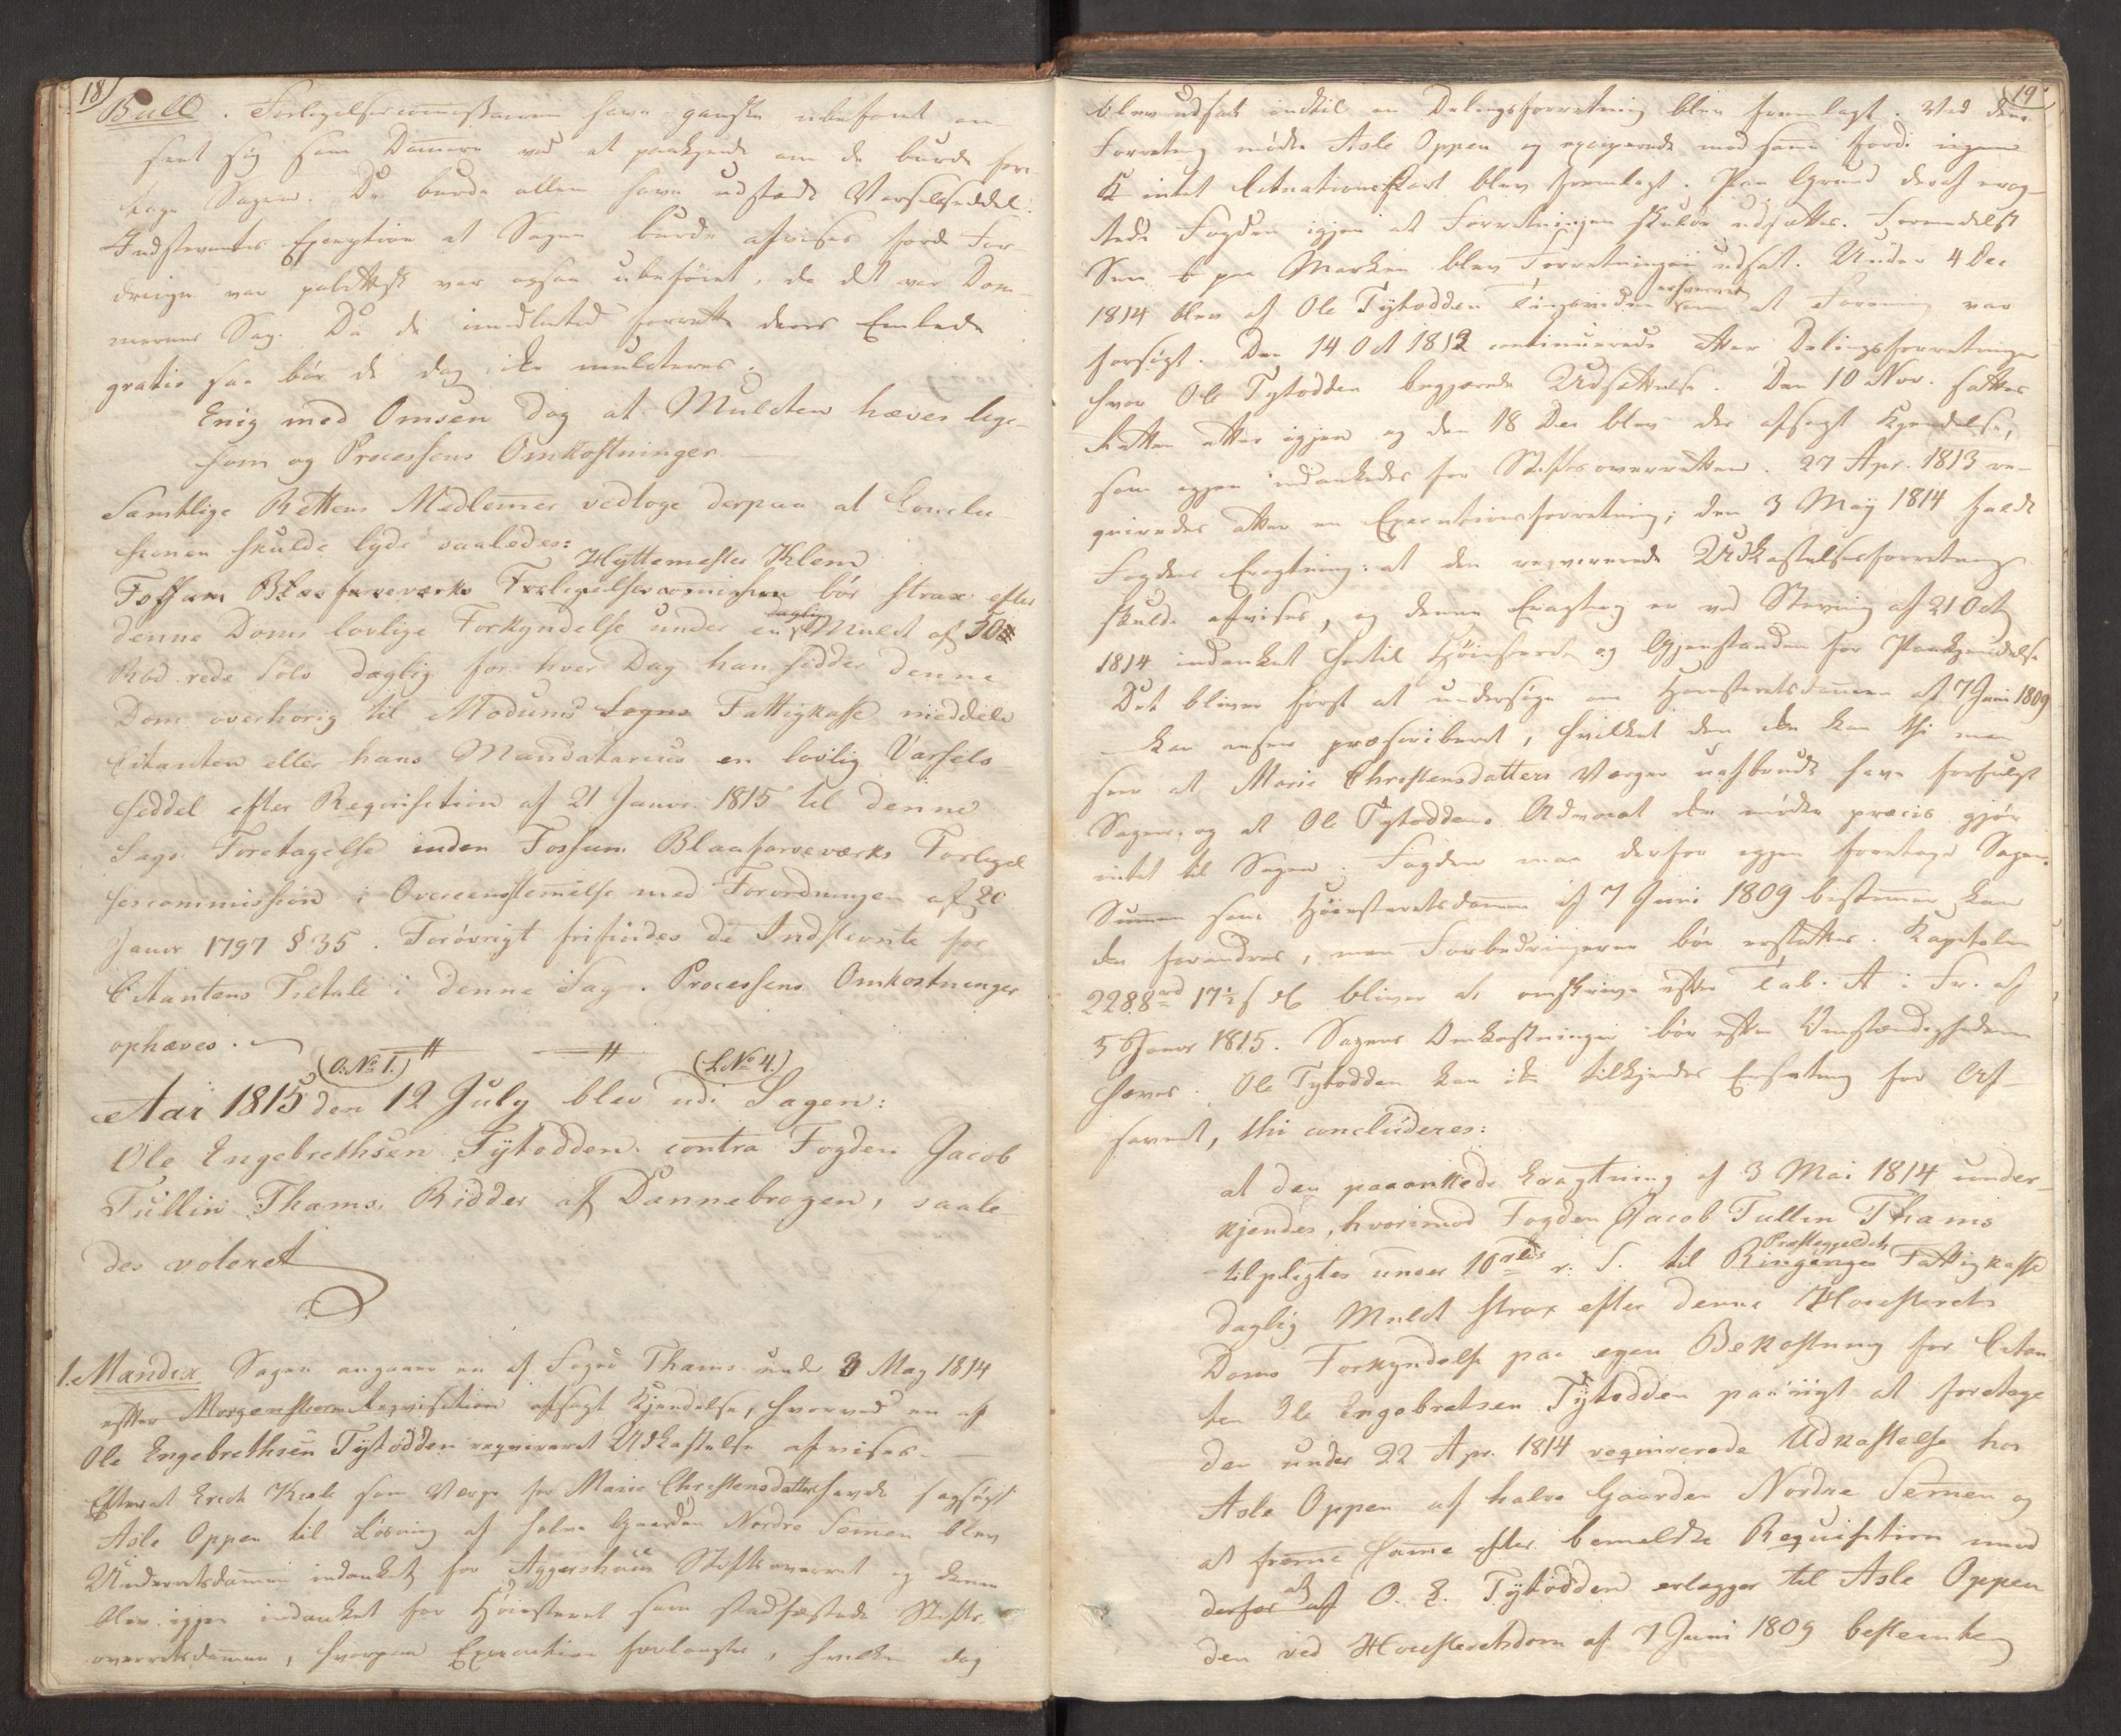 18
Bull. Forligelsescommissairen have ganske ubeføiet an-
seet sig som Dommere ved at paakjende om de burde fore-
tage Sagen. De burde allene have udstædt Varselseddel.
Indstevntes Exception at Sagen burde afvises fordi For-
dringen var politisk var ogsaa ubeføiet, da det var Dom-
mernes Sag. Da de imidlertid forrette deres Embede
gratis saa bør de dog ikke mulcteres.
Enig med Omsen dog at Mulcten hæves lige-
som og Processens Omkostninger.
Samtlige Rettens Medlemer vedtoge derpaa at Conclu-
sionen skulde lyde saaledes:
Hyttemester Klem
Fossum Blaafarveværks Forligelsescommission bør strax efter
denne Doms lovlige Forkyndelse under en daglig Mulct af 50
Rbd rede Sølv daglig for hver Dag han sidder denne
Dom overhørig til Modums Sogns Fattigkasse meddele
Citanten eller hans Mandatarius en lovlig Varsels-
seddel efter Requisition af 21 Januar 1815 til denne
Sags Foretagelse inden Fossum Blaafarveværks Forligel
sescommission i Overeensstemelse med Forordningen af 20
Januar 1797 § 35. Forøvrigt frifindes de Indstevnte for
Citantens Tiltale i denne Sag. Processens Omkostninger
ophæves.
O. No 1. L. No 4.
Aar 1815 den 12 July blev udi Sagen:
Ole Engebrethsen Tÿtodden contra Fogden Jacob
Tullin Thams, Ridder af Dannebrogen, saale
des voteret
1. Mandix Sagen angaaer en af Foged Thams under 3 May 1814
efter Morgenstierne Reqvisition afsagt Kjendelse, hvorved en af
Ole Engebrethsen Tÿtodden reqvireret Udkastelse afvises.
Efterat Erich som Værge for Marie Christensdatter havde sagsøgt
Asle Oppen til Løsning af halve Gaarden Nordre Semen blev
Underretsdommen indanket for Aggershuus Stiftsoverret og denne
blev igjen indanket for Høiesteret som stadfæstede Stifts-
overretsdommen, hvorpaa Execution forlangtes, hvilken dog
19
blev udsat indtil en Delingsforretning blev fremlagt. Ved denne
Forretning mødte Asle Oppen og exciperede mod samme fordi ingen
intet Citations blev fremlagt. Paa Grund deraf erag-
tede Fogden igjen at Forretningen skulde udsættes. Formedelst
Snee paa Marken blev Forretningen udsat. Under 4 Dec
1814 blev af Ole Tÿtodden Tingsvidne erhvervet om at Forening var
forsøgt. Den 14 Oct 1812 continuerede atter Delingsforretningen
hvor Ole Tytodden begjærede Udsættelse. Den 10 Nov. sattes
Retten atter igjen og den 18 Dec blev der afsagt Kjendelse,
som igjen indankedes for Stiftsoverretten. 27 Apr. 1813 re-
qvireredes atter en Executionsforretning; den 3 Maÿ 1814 faldt
Fogdens Eragtning: at den reqvirerede Udkastelsesforretning
skulde afvises, og denne Eragtning er ved Stevning af 21 Oct
1814 indanket hertil Høiesteret og Gjenstanden for Paakjendelse
Det bliver først at undersøge om Høiesteretsdommen af 7 Juni 1809
kan ansees præscriberet, hvilket den ikke kan thi man
seer at Marie Christensdatters Værger uafbrudt have forfulgt
Sagen, og at Ole Tytoddens Advocat ikke mødte præcis gjør
intet til Sagen. Fogden maa derfor igjen foretage Sagen.
Summen som Høiesteretsdommen af 7 Juni 1809 bestemmer kan
ikke forandres, men Forbedringerne bør erstattes. Kapitalen
2288 rd 17½ s bliver at omskrive efter Tab. A i Fr. af
5 Januar 1815. Sagens Omkostninger bør efter Omstændighederne
hæves. Ole Tytodden kan ikke tilkjendes Erstatning for Af-
savnet, thi concluderes:
at den paaankede Eragtning af 3 Mai 1814 under-
kjendes, hvorimod Fogden Jacob Tullin Thams
tilpligtes under 10 rbd r. S. til Ringeriges Præstegjelds Fattigkasse
daglig Mulct strax efter denne Høiesterets
Doms Forkyndelse paa egen Bekostning for Citan
ten Ole Engebretsen Tÿtodden paanÿt at foretage
den under 22 Apr. 1814 requirerede Udkastelse hos
Asle Oppen af halve Gaarden Nordre Semen og
at fremme samme efter bemeldte Requisition imod
derfor af at O. E. Tÿtodden erlægger til Asle Oppen
den ved Høiesteretsdom af 7 Juni 1809 bestemte